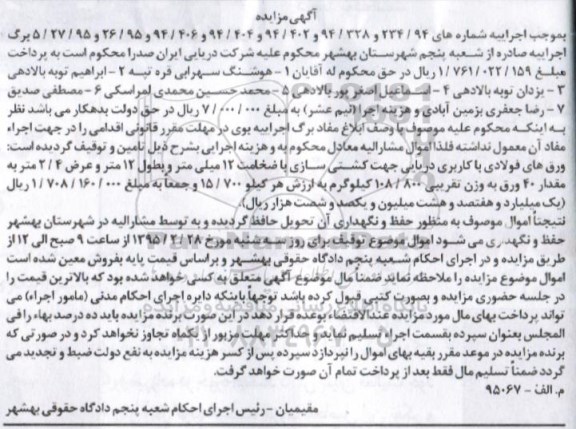 آگهی مزایده
بموجب اجراییه شماره های ۹۴ / ۲۳۴ و ۳۲۸ / ۹۴ و ۴۰۲ / ۹۴ و ۴۰۴ / ۹۴ و ۴۰۶ / ۹۴ و ۹۵ / ۲۶ و ۹۵ / ۲۷ / ۵ برگ
اجراییه صادره از شعبه پنجم شهرستان بهشهر محکوم علیه شرکت دریایی ایران صدرا محکوم است به پرداخت
مبلغ ۱۵۹ / ۰۲۲ / ۷۶۱ / ۱ ریال در حق محکوم له آقایان ۱ - هوشنگ سهرابی قره تپه ۲ - ابراهیم توبه بالادهی
۳ - یزدان توبه بالادهی ۴ - اسماعیل اصغرپور بالادهی ۵ - محمدحسین محمدی لمراسکی ۶ - مصطفی صدیق
۷ - رضا جعفری بزمین آبادی و هزینه اجرا (نیم عشر) به مبلغ ۰۰۰ / ۰۰۰ / ۷ ریال در حق دولت بدهکار می باشد نظر
به اینکه محکوم علیه موصوف با وصف ابلاغ مفاد برگ اجراییه بوی در مهلت مقرر قانونی اقدامی را در جهت اجراء
مفاد آن معمول نداشته فلذا اموال مشارالیه معادل محکوم به و هزینه اجرایی بشرح ذیل تامین و توقیف گردیده است:
ورق های فولادی با کاربری دریایی جهت کشتی سازی با ضخامت ۱۲ میلی متر و بطول ۱۲ متر و عرض ۴ / ۲ متر به
مقدار ۴۰ ورق به وزن تقریبی ۸۰۰ / ۱۰۸ کیلوگرم به ارزش هر کیلو ۷۰۰ / ۱۵ و جمعا به مبلغ ۰۰۰ / ۱۶۰ / ۷۰۸ / ۱ ریال
(یک میلیارد و هفتصد و هشت میلیون و یکصد و شصت هزار ریال).
نتیجتاً اموال موصوف به منظور حفظ و نگهداری آن تحویل حافظ گردیده و به توسط مشارالیه در شهرستان بهشهر
حفظ و نگهداری می شود اموال موضوع توقیف برای روز سه شنبه مورخ ۲۸ / ۲ / ۱۳۹۵ از ساعت ۹ صبح الی ۱۲ از
طریق مزایده و در اجرای احکام شعبه پنجم دادگاه حقوقی بهشهر و براساس قیمت پایه بفروش معین شده است
اموال موضوع مزایده را ملاحظه نمایند ضمناً مال موضوع آگهی متعلق به کسی خواهد شده بود که بالاترین قیمت را
در جلسه حضوری مزایده و بصورت کتبی قبول کرده باشد توجهاً باینکه دایره اجرای احکام مدنی (مامور اجراء) می
تواند پرداخت بهای مال مورد مزایده عندالاقتضاء بوعده قرار دهد در این صورت برنده مزایده باید ده درصد بهاء را فی
المجلس بعنوان سپرده بقسمت اجراء تسلیم نماید و حداکثر مهلت مزبور از یکماه تجاوز نخواهد کرد و در صورتی که
برنده مزایده در موعد مقرر بقیه بهای اموال را نپردازد سپرده پس از کسر هزینه مزایده به نفع دولت ضبط و تجدید می
گردد ضمناً تسلیم مال فقط بعد از پرداخت تمام آن صورت خواهد گرفت.
م. الف - ۹۵۰۶۷
مقیمیان - رئیس اجرای احکام شعبه پنجم دادگاه حقوقی بهشهر